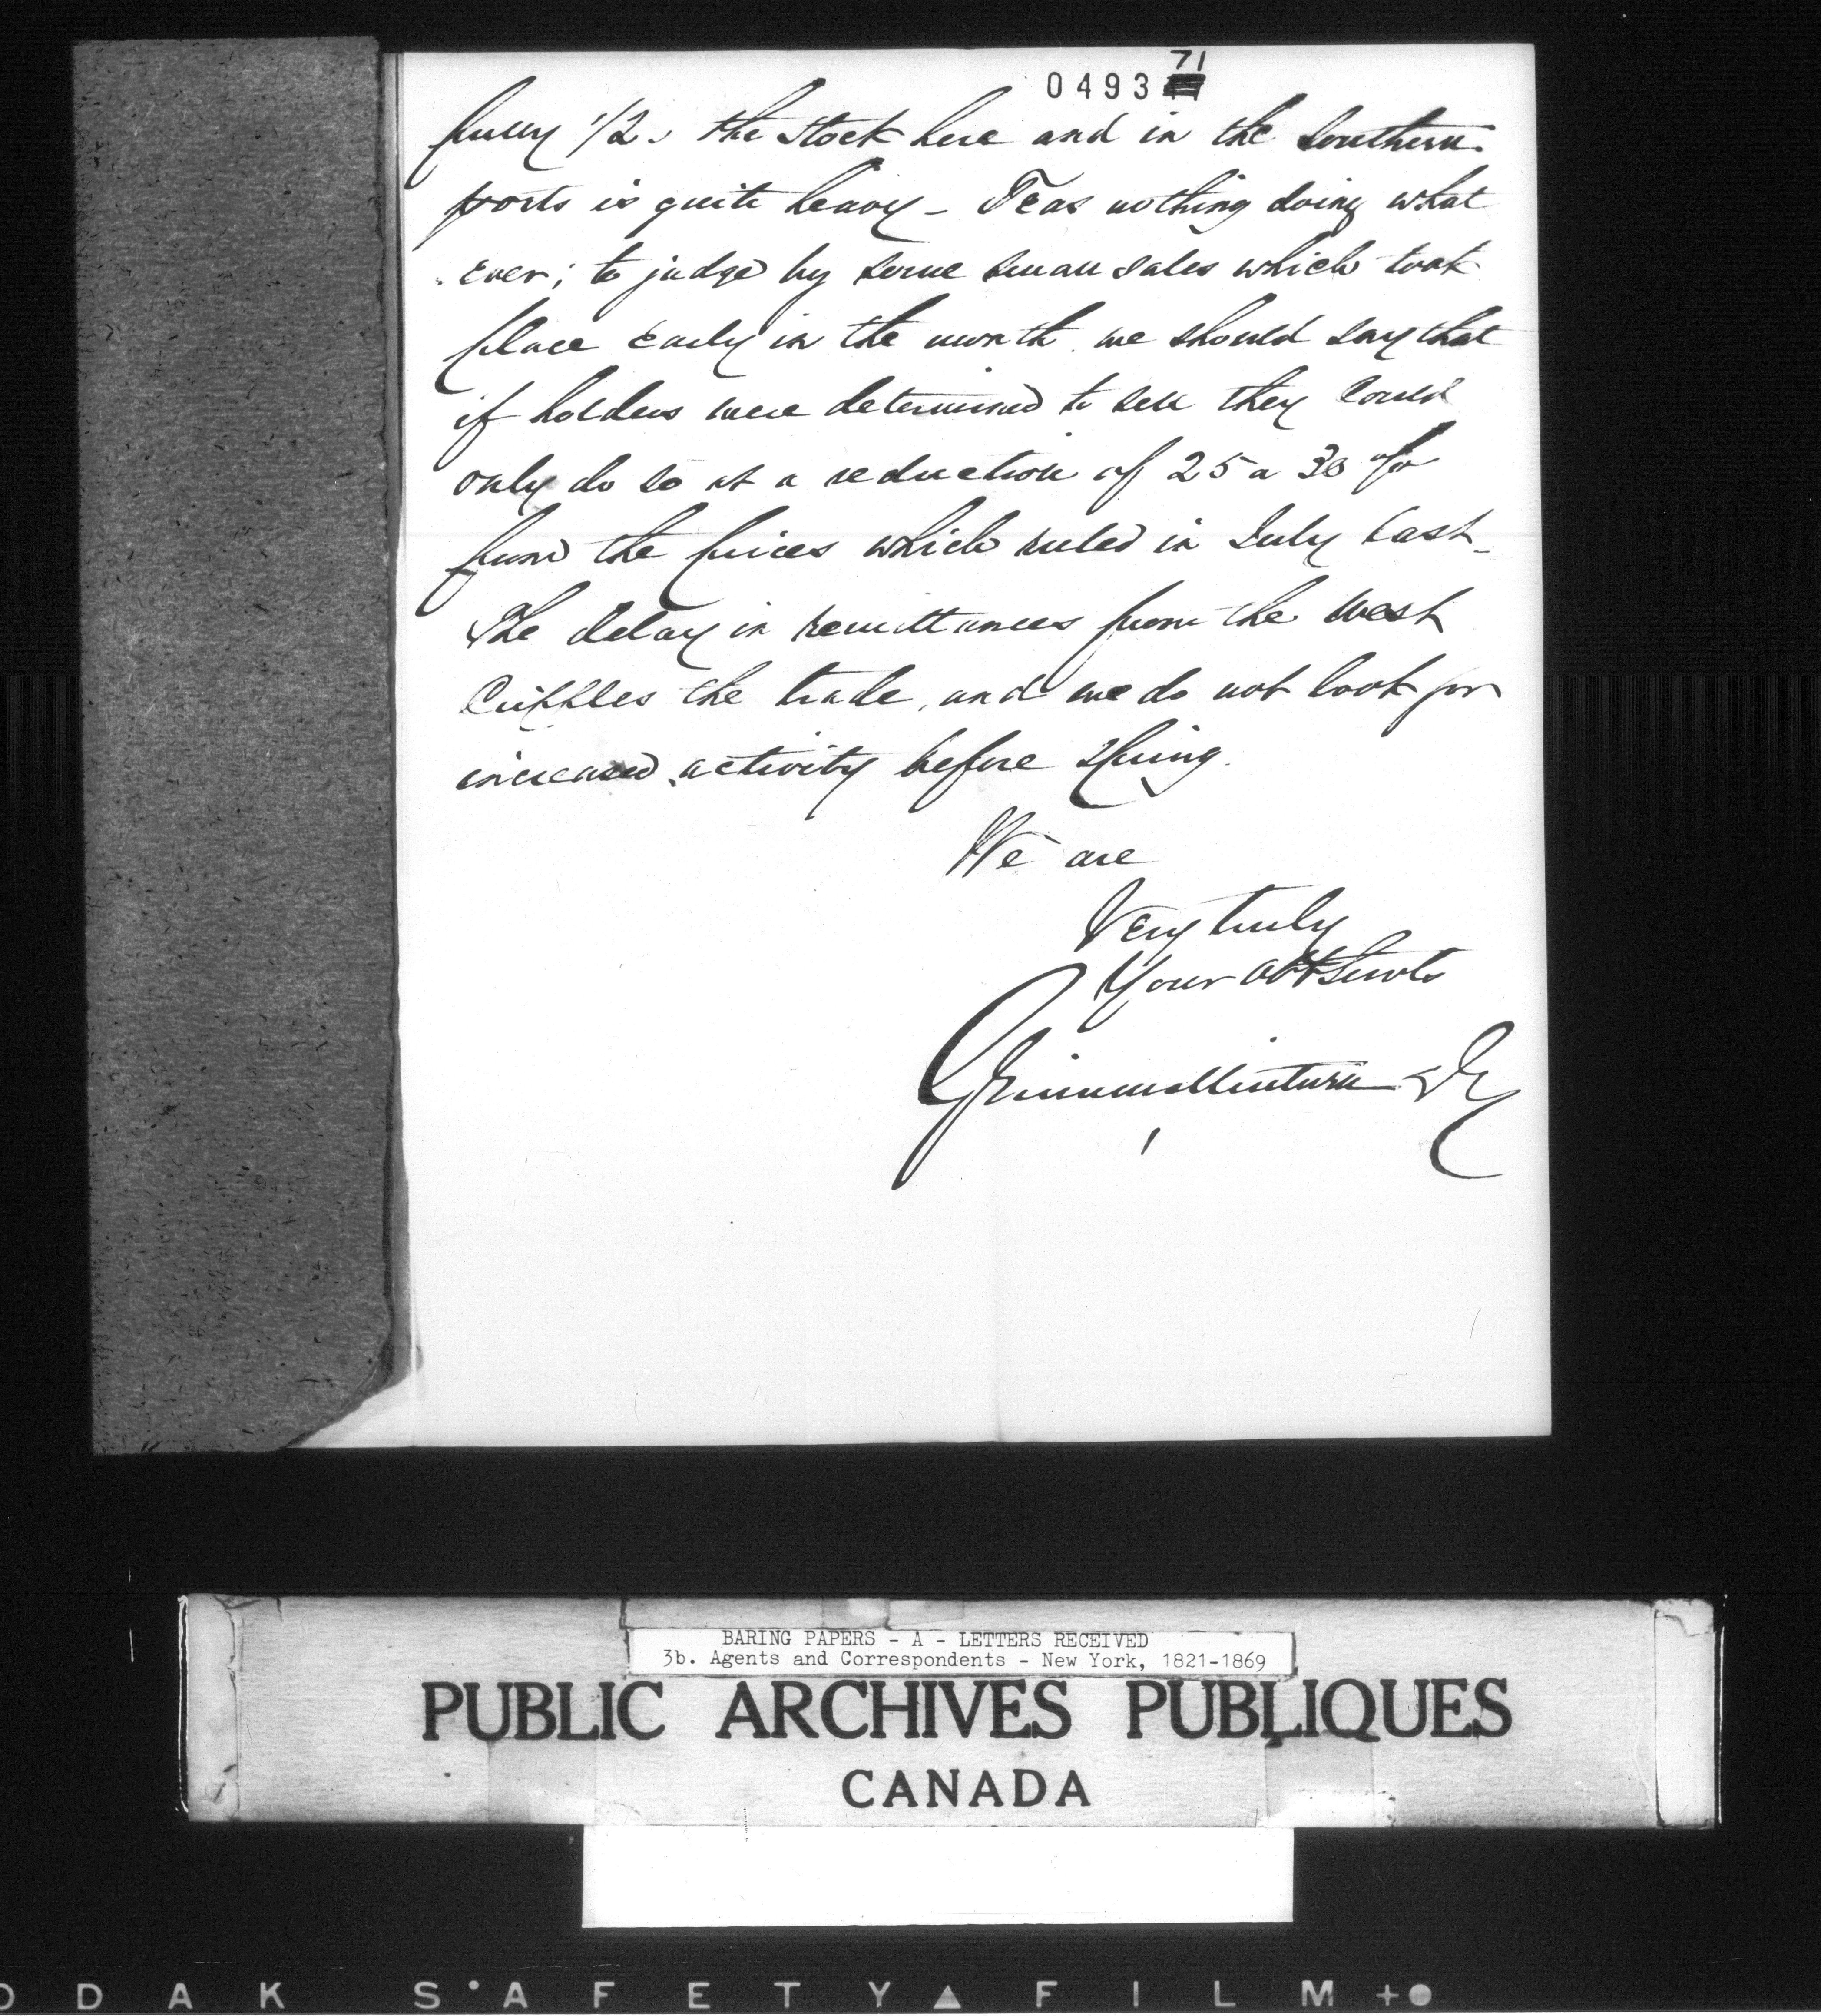 049371
fully 1/2. the stock here and in the Southern
ports is quite heavy – Teas nothing doing what
ever; to judge by some small sales which took
place early in the month we should say that
if holders were determined to sell they could
only do so at a reduction of 25 a 30 %
from the prices which ruled in July last –
The delay in remittances from the West
Cripples the trade, and we do not look for
increased activity before Spring.
We are
Very truly
Your obt Servts
Grinnell Minturn & Co
BARING PAPERS - A - LETTERS RECEIVED
3b. Agents and Correspondents - New York, 1821-1869
PUBLIC ARCHIVES PUBLIQUES
CANADA
ODAK SAFETY FILM